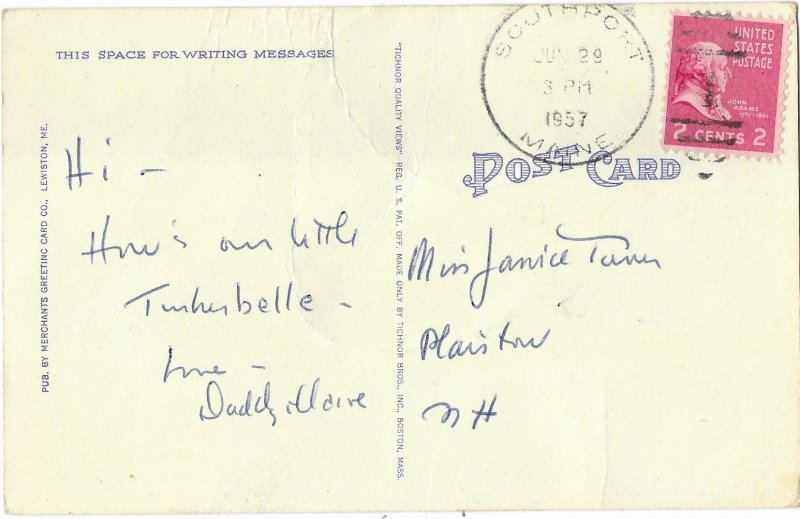 THIS SPACE FOR WRITING MESSAGES
Hi –
How's our little
Tinkerbelle –
Love –
Daddy
PUB. BY MERCHANTS GREETING CARD CO., LEWISTON, ME.
"TICHNOR QUALITY VIEWS" REG. U. S. PAT. OFF. MADE ONLY BY TICHNOR BROS., INC., BOSTON, MASS.
SOUTHPORT
JUN 29
3 PM
1957
MAINE
UNITED
STATES
POSTAGE
JOHN
ADAMS
1797-1801
2 CENTS 2
POST CARD
Miss Janice
Plaistow
NH